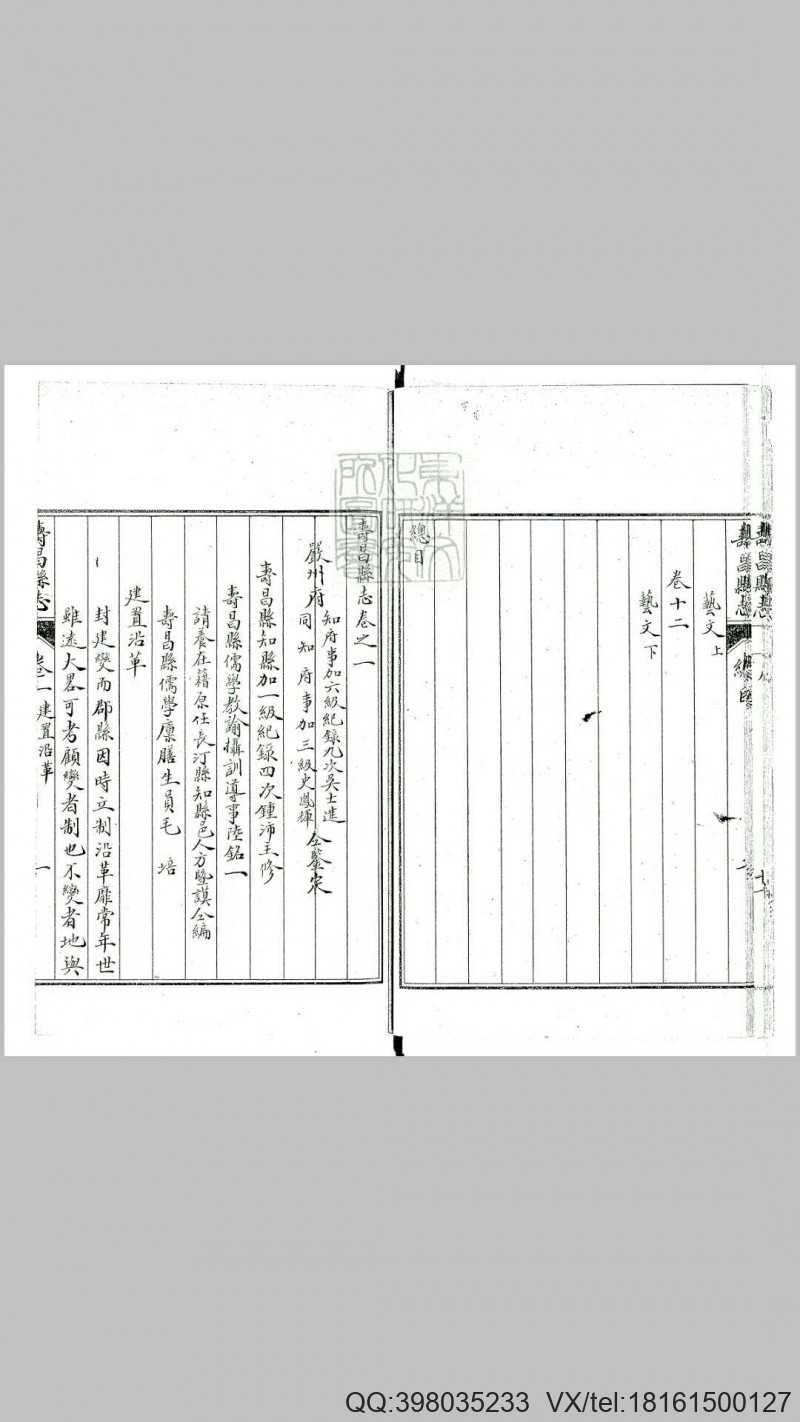 壽昌縣志
總目
藝文上
卷十二
藝文下
總目
壽昌縣志卷之一
知府事加六級紀錄九次吳士進
嚴州府
同知府事加三級史鳳輝
仝鑒定
壽昌縣知縣加一級紀錄四次鍾沛主修
壽昌縣儒學教諭攝訓導事陸銘一
請養在籍原任長汀縣知縣邑人方墍謨仝編
壽昌縣儒學廩膳生員毛培
建置沿革
封建變而郡縣因時立制沿革靡常年世
雖遠大畧可考顧變者制也不變者地與
壽昌縣志
卷一建置沿革
一
QQ:398035233 VX/tel:18161500127